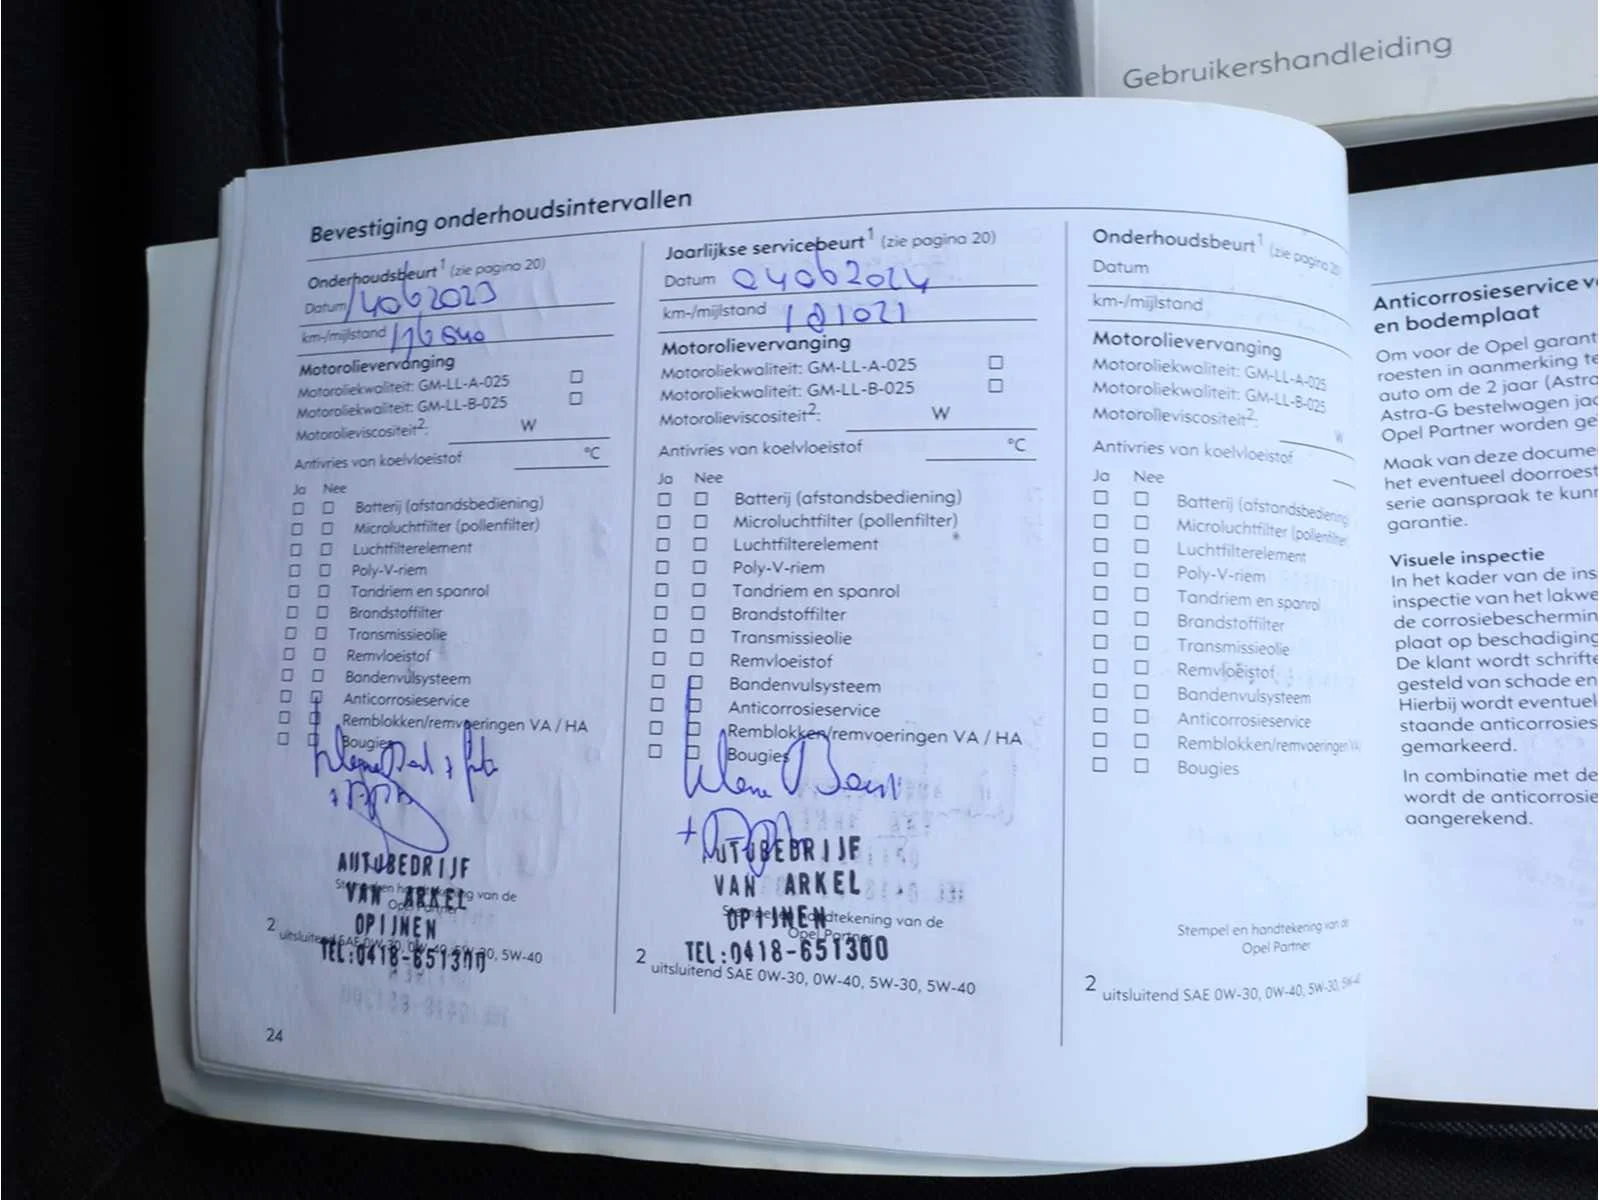 Gebruikershandleiding
Bevestiging onderhoudsintervallen
Onderhoudsbeurt¹ (zie pagina 20)
Datum 14062023
km-/mijlstand 176840
Motorolievervanging
Motoroliekwaliteit: GM-LL-A-025 ☐
Motoroliekwaliteit: GM-LL-B-025 ☐
Motorolieviscositeit²: W
Antivries van koelvloeistof °C
Ja Nee
☐ ☐ Batterij (afstandsbediening)
☐ ☐ Microluchtfilter (pollenfilter)
☐ ☐ Luchtfilterelement
☐ ☐ Poly-V-riem
☐ ☐ Tandriem en spanrol
☐ ☐ Brandstoffilter
☐ ☐ Transmissieolie
☐ ☐ Remvloeistof
☐ ☐ Bandenvulsysteem
☐ ☐ Anticorrosieservice
☐ ☐ Remblokken/remvoeringen VA / HA
☐ ☐ Bougies
AUTOBEDRIJF
VAN ARKEL
OPIJNEN
TEL:0418-651300
Stempel en handtekening van de
Opel Partner
2 uitsluitend SAE 0W-30, 0W-40, 5W-30, 5W-40
24
Jaarlijkse servicebeurt¹ (zie pagina 20)
Datum 04062024
km-/mijlstand 181021
Motorolievervanging
Motoroliekwaliteit: GM-LL-A-025 ☐
Motoroliekwaliteit: GM-LL-B-025 ☐
Motorolieviscositeit²: W
Antivries van koelvloeistof °C
Ja Nee
☐ ☐ Batterij (afstandsbediening)
☐ ☐ Microluchtfilter (pollenfilter)
☐ ☐ Luchtfilterelement
☐ ☐ Poly-V-riem
☐ ☐ Tandriem en spanrol
☐ ☐ Brandstoffilter
☐ ☐ Transmissieolie
☐ ☐ Remvloeistof
☐ ☐ Bandenvulsysteem
☐ ☐ Anticorrosieservice
☐ ☐ Remblokken/remvoeringen VA / HA
☐ ☐ Bougies
Kleine Beurt
AUTOBEDRIJF
VAN ARKEL
OPIJNEN
TEL:0418-651300
Stempel en handtekening van de
Opel Partner
2 uitsluitend SAE 0W-30, 0W-40, 5W-30, 5W-40
Onderhoudsbeurt¹ (zie pagina 20
Datum
km-/mijlstand
Motorolievervanging
Motoroliekwaliteit: GM-LL-A-025
Motoroliekwaliteit: GM-LL-B-025
Motorolieviscositeit²: W
Antivries van koelvloeistof
Ja Nee
☐ ☐ Batterij (afstandsbediening
☐ ☐ Microluchtfilter (pollenfilter
☐ ☐ Luchtfilterelement
☐ ☐ Poly-V-riem
☐ ☐ Tandriem en spanrol
☐ ☐ Brandstoffilter
☐ ☐ Transmissieolie
☐ ☐ Remvloeistof
☐ ☐ Bandenvulsysteem
☐ ☐ Anticorrosieservice
☐ ☐ Remblokken/remvoeringen VA
☐ ☐ Bougies
Stempel en handtekening van de
Opel Partner
2 uitsluitend SAE 0W-30, 0W-40, 5W-30, 5W-4
Anticorrosieservice v
en bodemplaat
Om voor de Opel garant
roesten in aanmerking te
auto om de 2 jaar (Astra
Astra-G bestelwagen jac
Opel Partner worden ge
Maak van deze docume
het eventueel doorroest
serie aanspraak te kunn
garantie.
Visuele inspectie
In het kader van de ins
inspectie van het lakwe
de corrosiebeschermin
plaat op beschadiging
De klant wordt schrifte
gesteld van schade en
Hierbij wordt eventuel
staande anticorrosies
gemarkeerd.
In combinatie met de
wordt de anticorrosie
aangerekend.